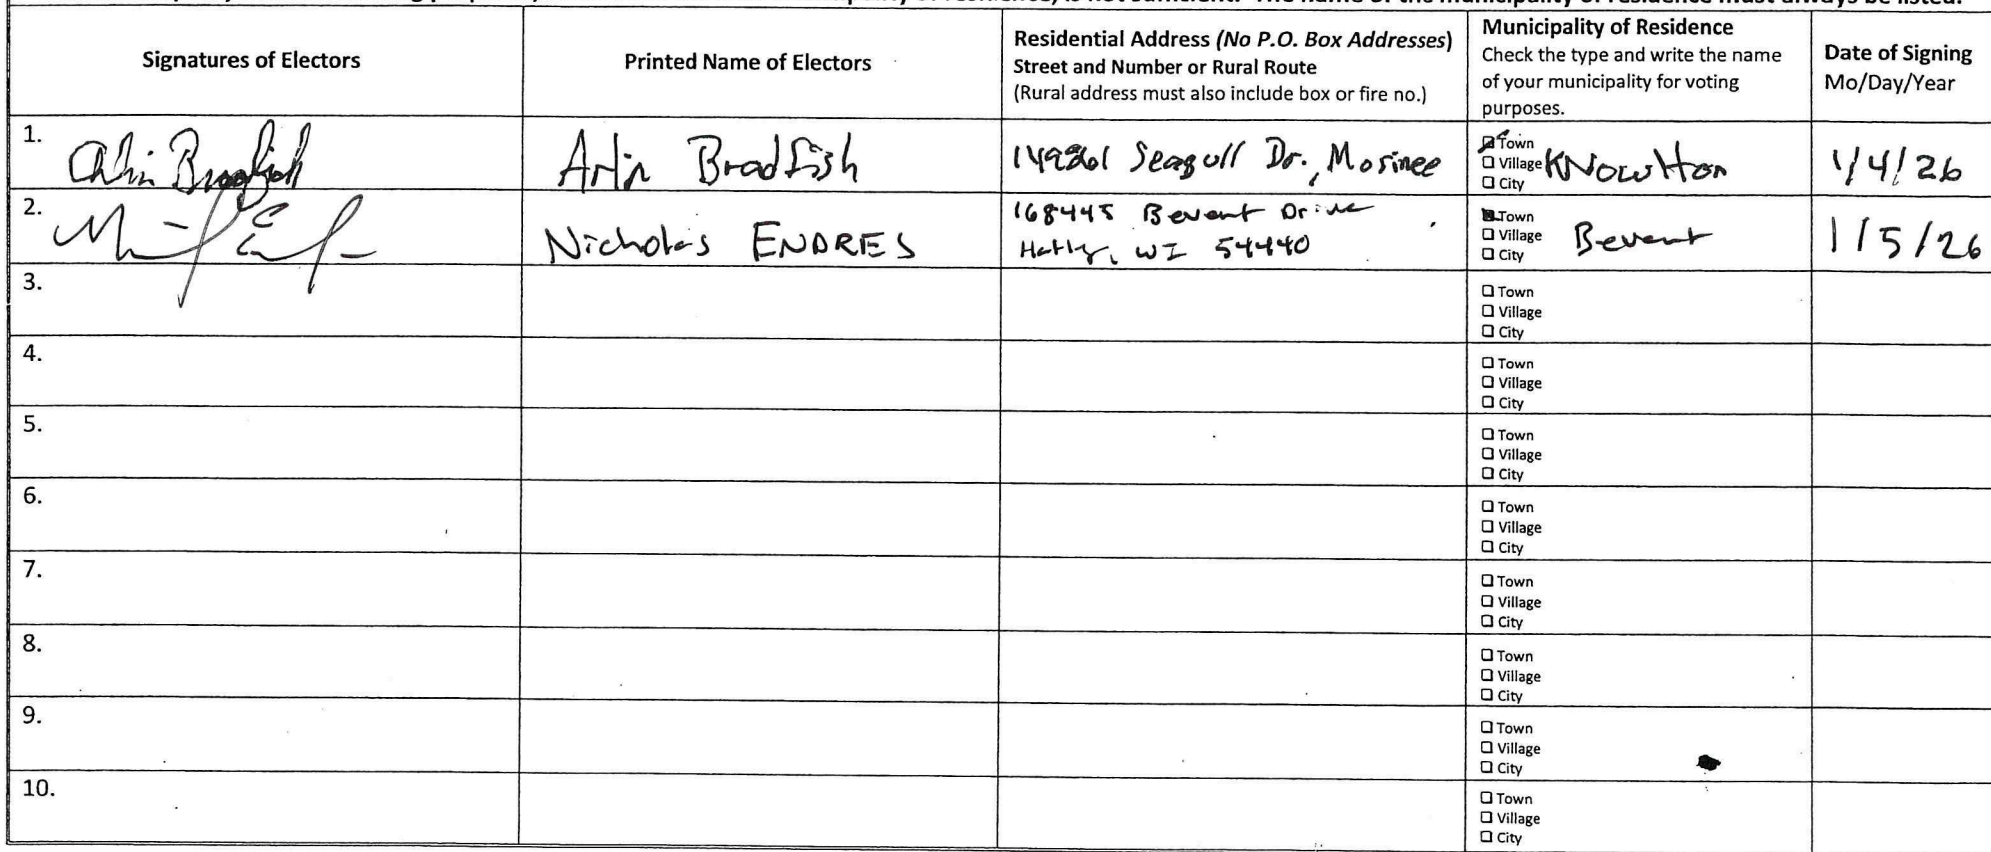 is not sufficient. The name of the municipality of residence must always be listed.
Signatures of Electors
Printed Name of Electors
Residential Address (No P.O. Box Addresses)
Street and Number or Rural Route
(Rural address must also include box or fire no.)
Municipality of Residence
Check the type and write the name
of your municipality for voting
purposes.
Date of Signing
Mo/Day/Year
1.
Arlin Bradfish
Seagull Dr., Mosinee
Town
Village
City
Knowlton
1/4/26
2.
Nicholas ENDRES
168445 Bevent Drive
Hatley, WI 54440
Town
Village
City
Bevent
1/5/26
3.
Town
Village
City
4.
Town
Village
City
5.
Town
Village
City
6.
Town
Village
City
7.
Town
Village
City
8.
Town
Village
City
9.
Town
Village
City
10.
Town
Village
City